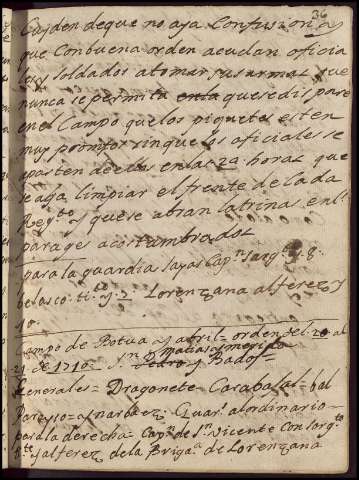 36
Cuyden de que no aya Confusion y
que Con buena orden acudan oficia
les y soldados a tomar sus armas que
nunca se permita en la que se dispare
en el Campo que los piquetes esten
muy promtos sin que los oficiales se
aparten de ellos en las 24 horas que
se aga limpiar el frente de cada
Rexto y que se abran latrinas en los
parages acostumbrados
para la guardia Sayas Capn sargto 1. 8.
belasco tite y 3. Lorenzana alferez y
10.
Campo de Botua y abril orden del 20 al
21 de 1710 = Sn Matias esmerida
Pedro y Badoz =
Generales = Dragonete = Carabajal = bal
Pareyso = y narbaez Quarl al ordinario
para la derecha = Capn de Sn Vicente Con sargto
y alferez de la Briga de Lorenzana